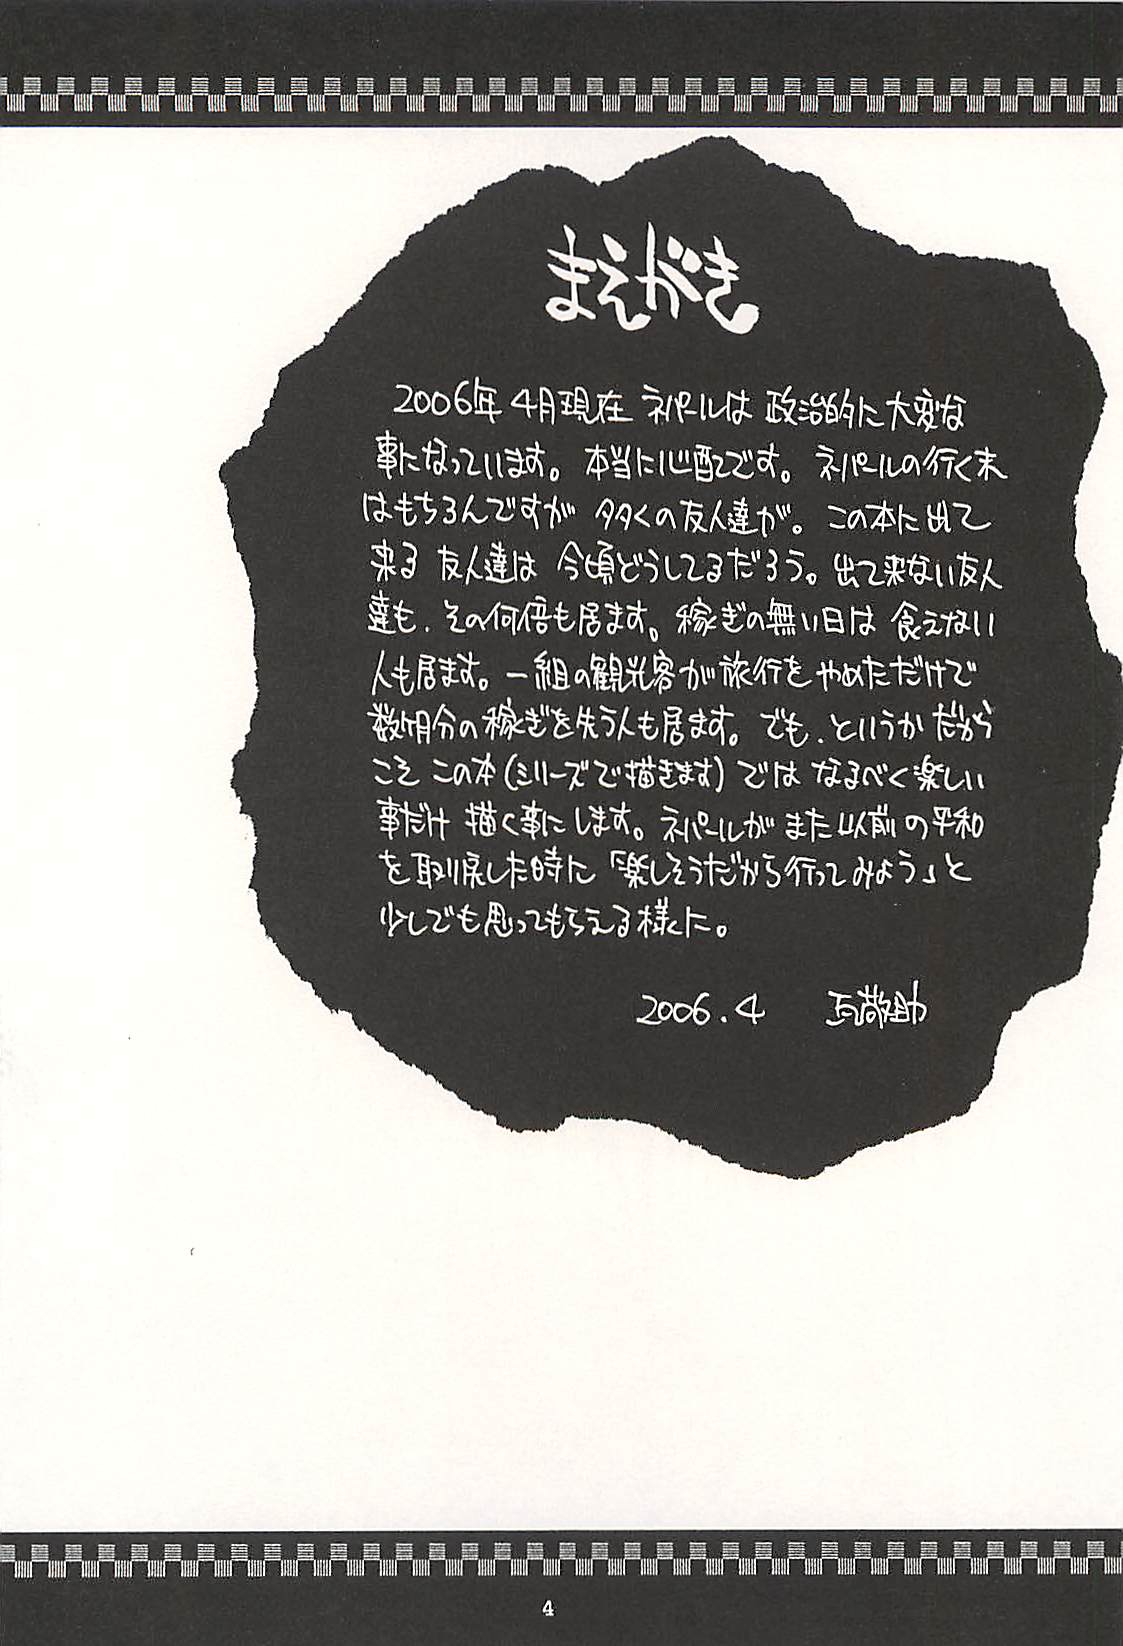 まえがき
2006年4月現在 ネパールは 政治的に大変な
事になっています。本当に心配です。ネパールの行く末
はもちろんですが 多くの友人達が。この本に出て
来る 友人達は 今頃どうしてるだろう。出て来ない友人
達も、その何倍も居ます。稼ぎの無い日は 食えない
人も居ます。一組の観光客が旅行をやめただけで
数ヶ月分の稼ぎを失う人も居ます。でも、というか だから
こそ この本(シリーズで描きます)では なるべく楽しい
事だけ 描く事にします。ネパールが また以前の平和
を取り戻した時に「楽しそうだから行ってみよう」と
少しでも思ってもらえる様に。
2006.4 瓦敬助
4